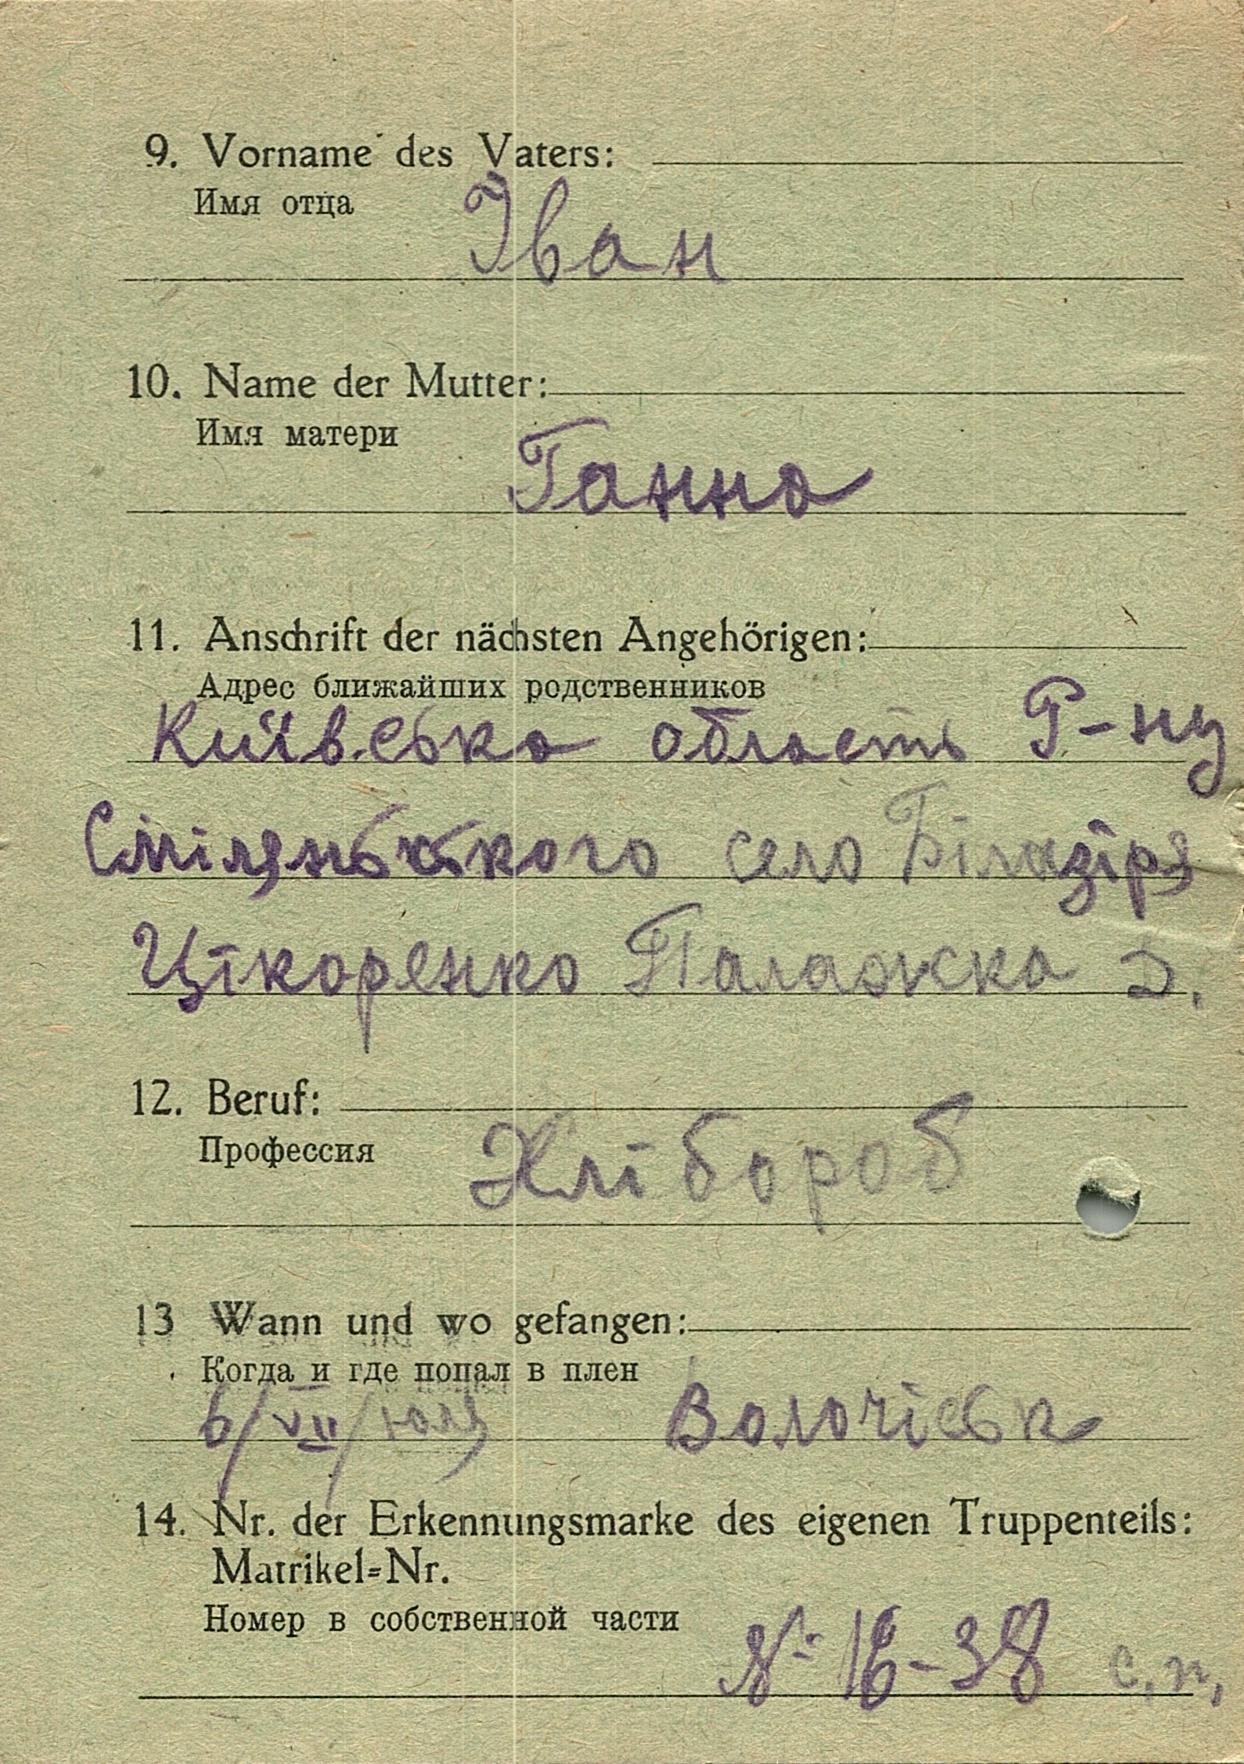 9. Vorname des Vaters:
Имя отца
Іван
10. Name der Mutter:
Имя матери
Ганна
11. Anschrift der nächsten Angehörigen:
Адрес ближайших родственников
Київська область Р-ну
село Білазіря
Цікоренко Палажка
12. Beruf:
Профессия
Хлібороб
13 Wann und wo gefangen:
Когда и где попал в плен
6/VII/юля Волочіськ
14. Nr. der Erkennungsmarke des eigenen Truppenteils:
Matrikel=Nr.
Номер в собственной части
№ 16-38 с.п,